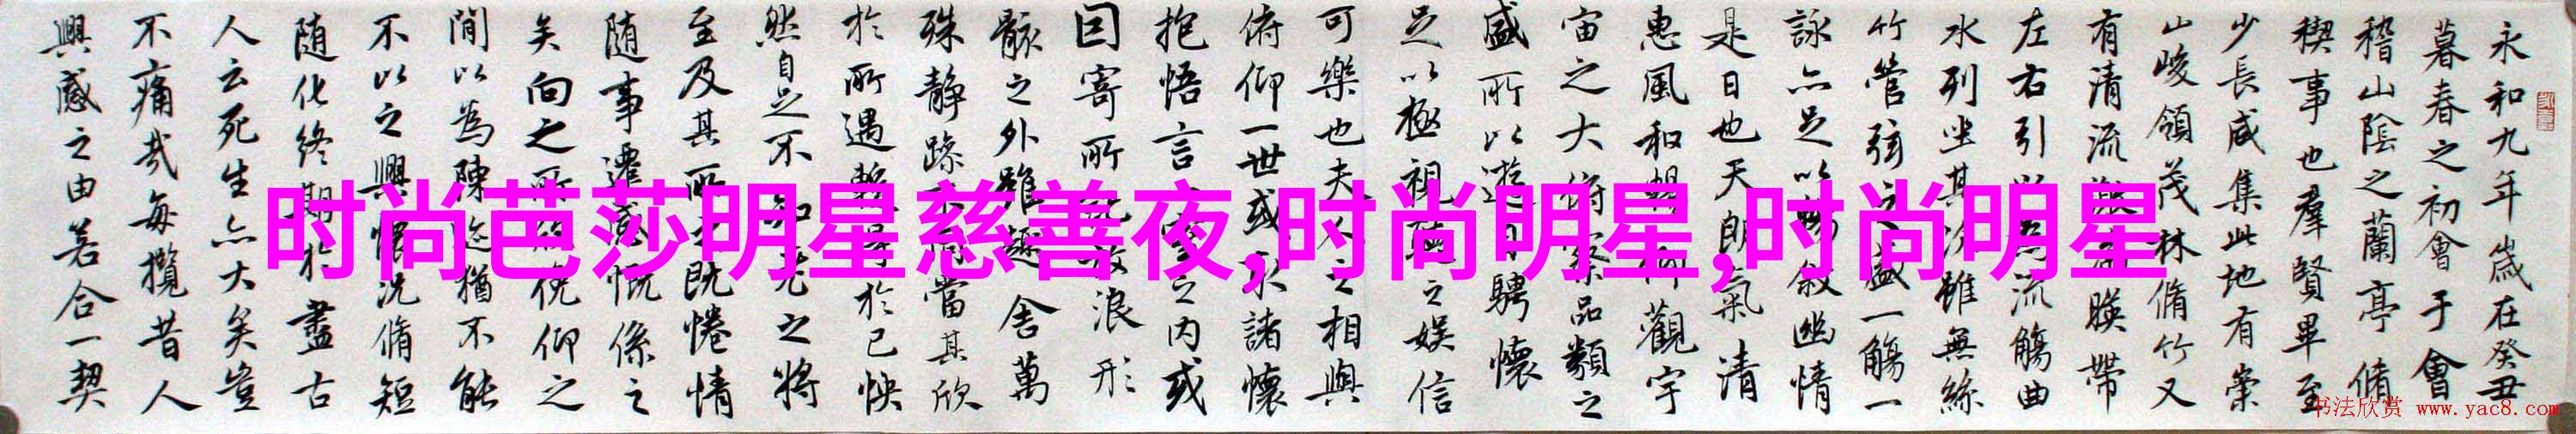 永和九年歲在癸丑
暮春之初會于會
稽山陰之蘭亭脩
稧事也羣賢畢至
少長咸集此地有崇
山峻領茂林脩竹又
有清流激湍暎帶
左右引以為流觴曲
水列坐其次雖無絲
竹管弦之盛一觴一
詠亦足以暢敘幽情
是日也天朗氣清
惠風和暢仰觀宇
宙之大俯察品類之
盛所以遊目騁懷
足以極視聽之娛信
可樂也夫人之相與
俯仰一世或取諸懷
抱悟言一室之內或
因寄所託放浪形
骸之外雖趣舍萬
殊靜躁不同當其欣
於所遇暫得於己怏
然自足不知老之將
至及其所之既惓情
隨事遷感慨係之
矣向之所欣俛仰之
閒以為陳迹猶不能
不以之興懷況脩短
隨化終期於盡古
人云死生亦大矣豈
不痛哉每攬昔人
興感之由若合一契
时尚芭莎明星慈善夜,时尚明星,时尚明星
书法欣赏 www.yac8.com